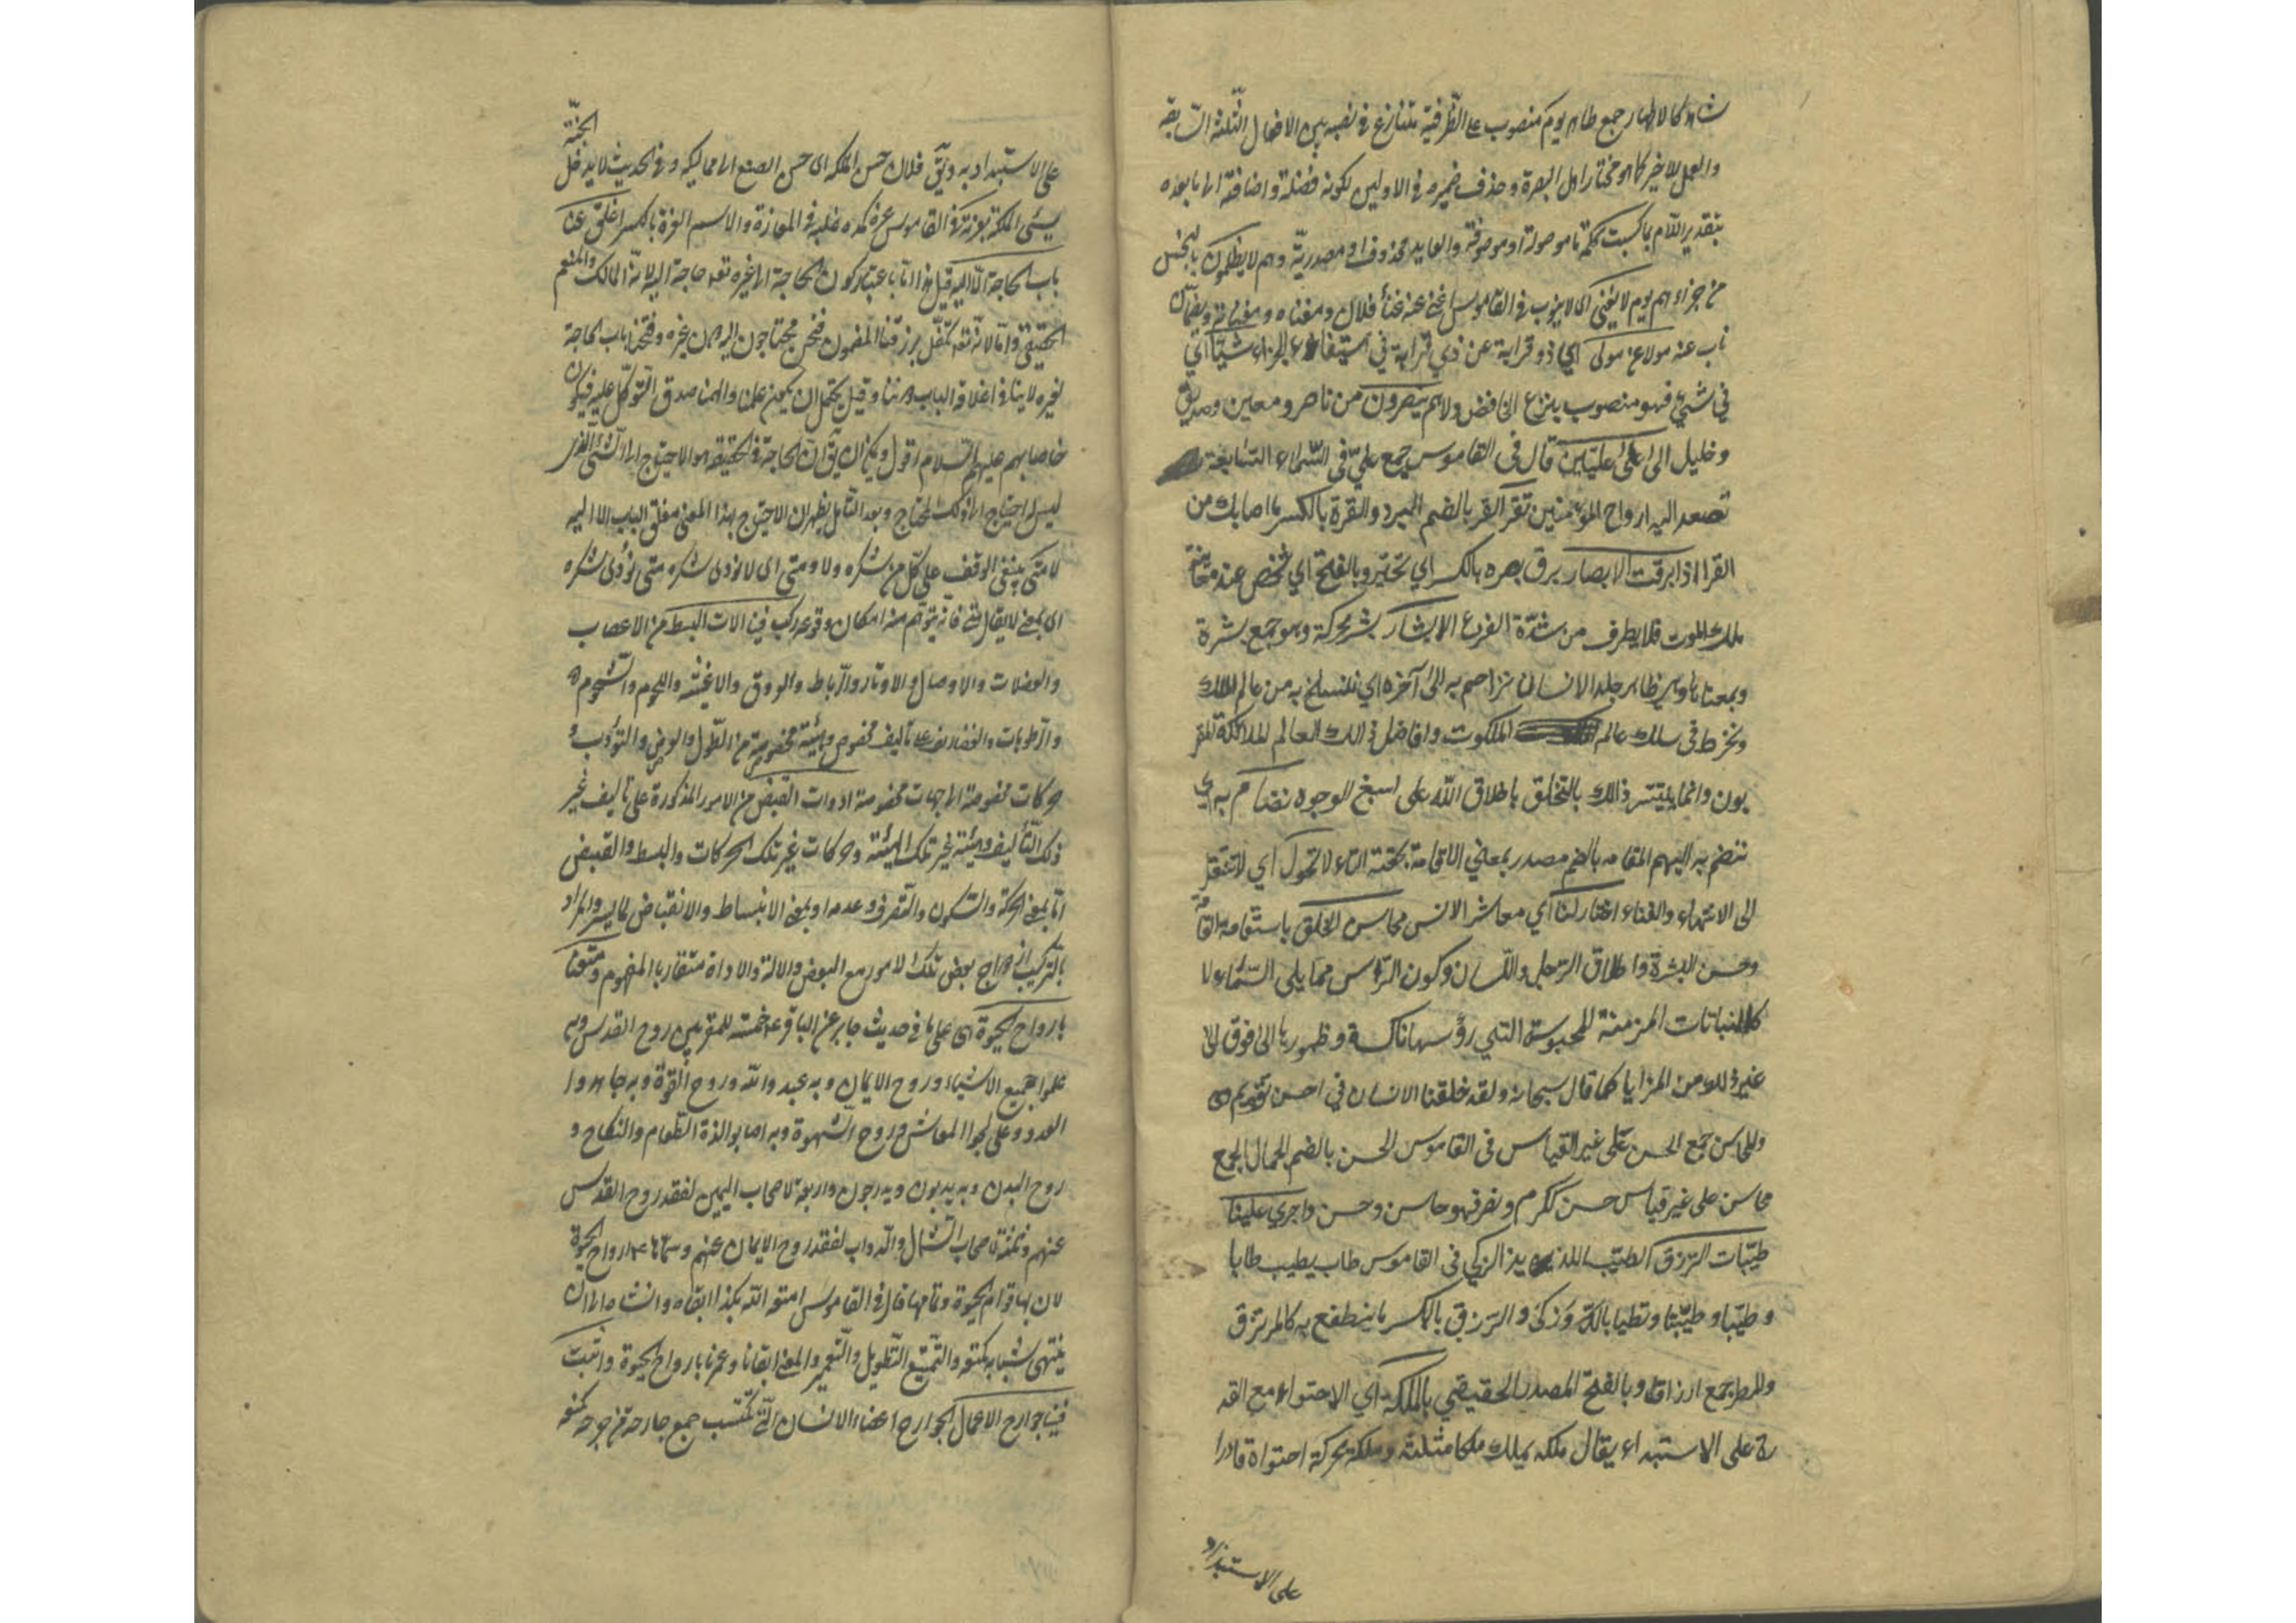 شاهد كالاطهار جمع طاهر يوم منصوب على الظرفية تنازع في نصبه بين الافعال الثلثة السابقة
والعمل للاخير كما هو مختار اهل البصرة وحذف ضميره في الاولين لكونه فضلة واضافته الى ما بعده
بتقدير اللام بما كسبت كلمة ما موصولة او موصوفة والعايد محذوف او مصدرية وهم لا يظلمون بالبخس
من جزاءهم يوم لا يغني اى لا ينوب في القاموس اغنى عنه غناء فلان ومغناه ومغناته ويضمان
ناب عنه مولا عن مولى اي ذو قرابة عن ذي قرابة في استيفاء الجزاء شيئا اي
في شيئ فهو منصوب بنزع الخافض ولا هم ينصرون من ناصر ومعين وصديق
وخليل الى اعلى عليين قال في القاموس جمع علي في السماء السابعة
تصعد اليه ارواح المؤمنين تقر القر بالضم البرد والقرة بالكسر ما اصابك من
القر اذا برقت الابصار برق بصره بالكسر اي تحير وبالفتح اي شخص عند معاينة
ملك الموت فلا يطرف من شدة الفزع الابشار بشر محركة وهو جمع بشرة
وبمعناها وهي ظاهر جلد الانسان نزاحم به الى آخره اي ننسلخ به من عالم الملك
ونخرط في سلك عالم الملكوت وافاضل ذلك العالم الملائكة المقر
بون وانما يتيسر ذلك بالتخلق باخلاق الله على اسبغ الوجوه نضام به اي
ننضم به اليهم المقامه بالضم مصدر بمعني الاقامة لحقته التاء لا تحول اي لا تنتقل
الى الانتهاء والفناء اختار لنا اي معاشر الانس محاسن الخلق باستقامة القامة
وحسن البشرة واطلاق الرجل واللسان وكون الراس مما يلي السماء لا
كالنباتات المزمنة المحبوسة التي رؤسها ناكسة وظهورها الى فوق الى
غير ذلك من المزايا كما قال سبحانه ولقد خلقنا الانسان في احسن تقويم
والمحاسن جمع الحسن على غير القياس في القاموس الحسن بالضم الجمال الجمع
محاسن على غير قياس حسن ككرم ونصر فهو حاسن وحسن واجري علينا
طيبات الرزق الطيب اللذيذ الزكي في القاموس طاب يطيب طابا
وطيبا وطيبتا وتطيابا لذ وزكى والرزق بالكسر ما ينتفع به كالمرتزق
والمطر جمع ارزاق وبالفتح المصدر الحقيقي بالملكة اي الاحتواء مع القد
رة على الاستبداء يقال ملكه يملك ملكا مثلثه وملكة محركة احتواه قادرا
على الاستبداد
على الاستبداد به ويق فلان حسن الملكة اى حسن الصنع الى مماليكه وفي الحديث لا يدخل الجنة
سيئ الملكة بعزته في القاموس عزه كمده غلبه في المعازة والاسم العزة بالكسر اغلق عنا
باب الحاجة الا اليه قيل هذا اما باعتبار كون الحاجة الى غيره تعه حاجة اليه لانه المالك والمنعم
الحقيقي واما لانه تعه تكفل برزقنا المضمون فنحن محتاجون اليه دون غيره وفتحنا باب الحاجة
لغيره لا ينافي اغلاقه الباب دوننا وقيل يحتمل ان يكون علمنا والهمنا صدق التوكل عليه فيكون
خاصا بهم عليهم السلام اقول ويمكن ان يق ان الحاجة في الحقيقة هو الاحتياج الى الشئ الذي
ليس له احتياج الى ذلك المحتاج وبعد التأمل يظهر ان الاحتياج بهذا المعنى مغلق الباب الا اليه
لا متى ينبغي الوقف على كل من شكره ولا ومتى اى لا نؤدي شكره متى نؤدى شكره
اى بمعنى لا يقال متى فانه يتوهم منه امكان وقوعه ركب فينا الات البسط من الاعصاب
والعضلات والاوصال والاوتار والرباط والعروق والاغشية واللحوم والشحوم
والرطوبات والغضاريف على تاليف مخصوص وهيئة مخصوصة من الطول والعرض والتوارب و
حركات مخصوصة الى جهات مخصوصة ادوات القبض من الامور المذكورة على تاليف غير
ذلك التأليف وهيئة غير تلك الهيئة وحركات غير تلك الحركات والبسط والقبض
اما بمعنى الحركة والسكون والتصرف وعدمه او بمعنى الانبساط والانقباض كما يسر والمراد
بالتركيب ازدواج بعض تلك الامور مع البعض والالة والاداة متقاربا المفهوم ومتعنا
بارواح الحيوة اى على ما في حديث جابر عن الباقر ع خمسة للمقربين روح القدس وبه
علموا جميع الاشياء وروح الايمان وبه عبدوا الله وروح القوة وبه جاهدوا
العدو وعالجوا المعاش وروح الشهوة وبه اصابوا لذة الطعام والنكاح و
روح البدن وبه يدبون ويدرجون واربعة لاصحاب اليمين لفقد روح القدس
عنهم وثلثة لاصحاب الشمال والدواب لفقد روح الايمان عنهم وسماها ع ارواح الحيوة
لان بها قوام الحيوة وتمامها قال في القاموس امتعه الله بكذا ابقاه وانشاه الى ان
ينتهى شبابه كمتعه والتمتيع التطويل والتعمير والمعنى ابقانا وعمرنا بارواح الحيوة واثبت
فينا جوارح الاعمال الجوارح اعضاء الانسان التي تكتسب جمع جارحة من جرحه كمنعه